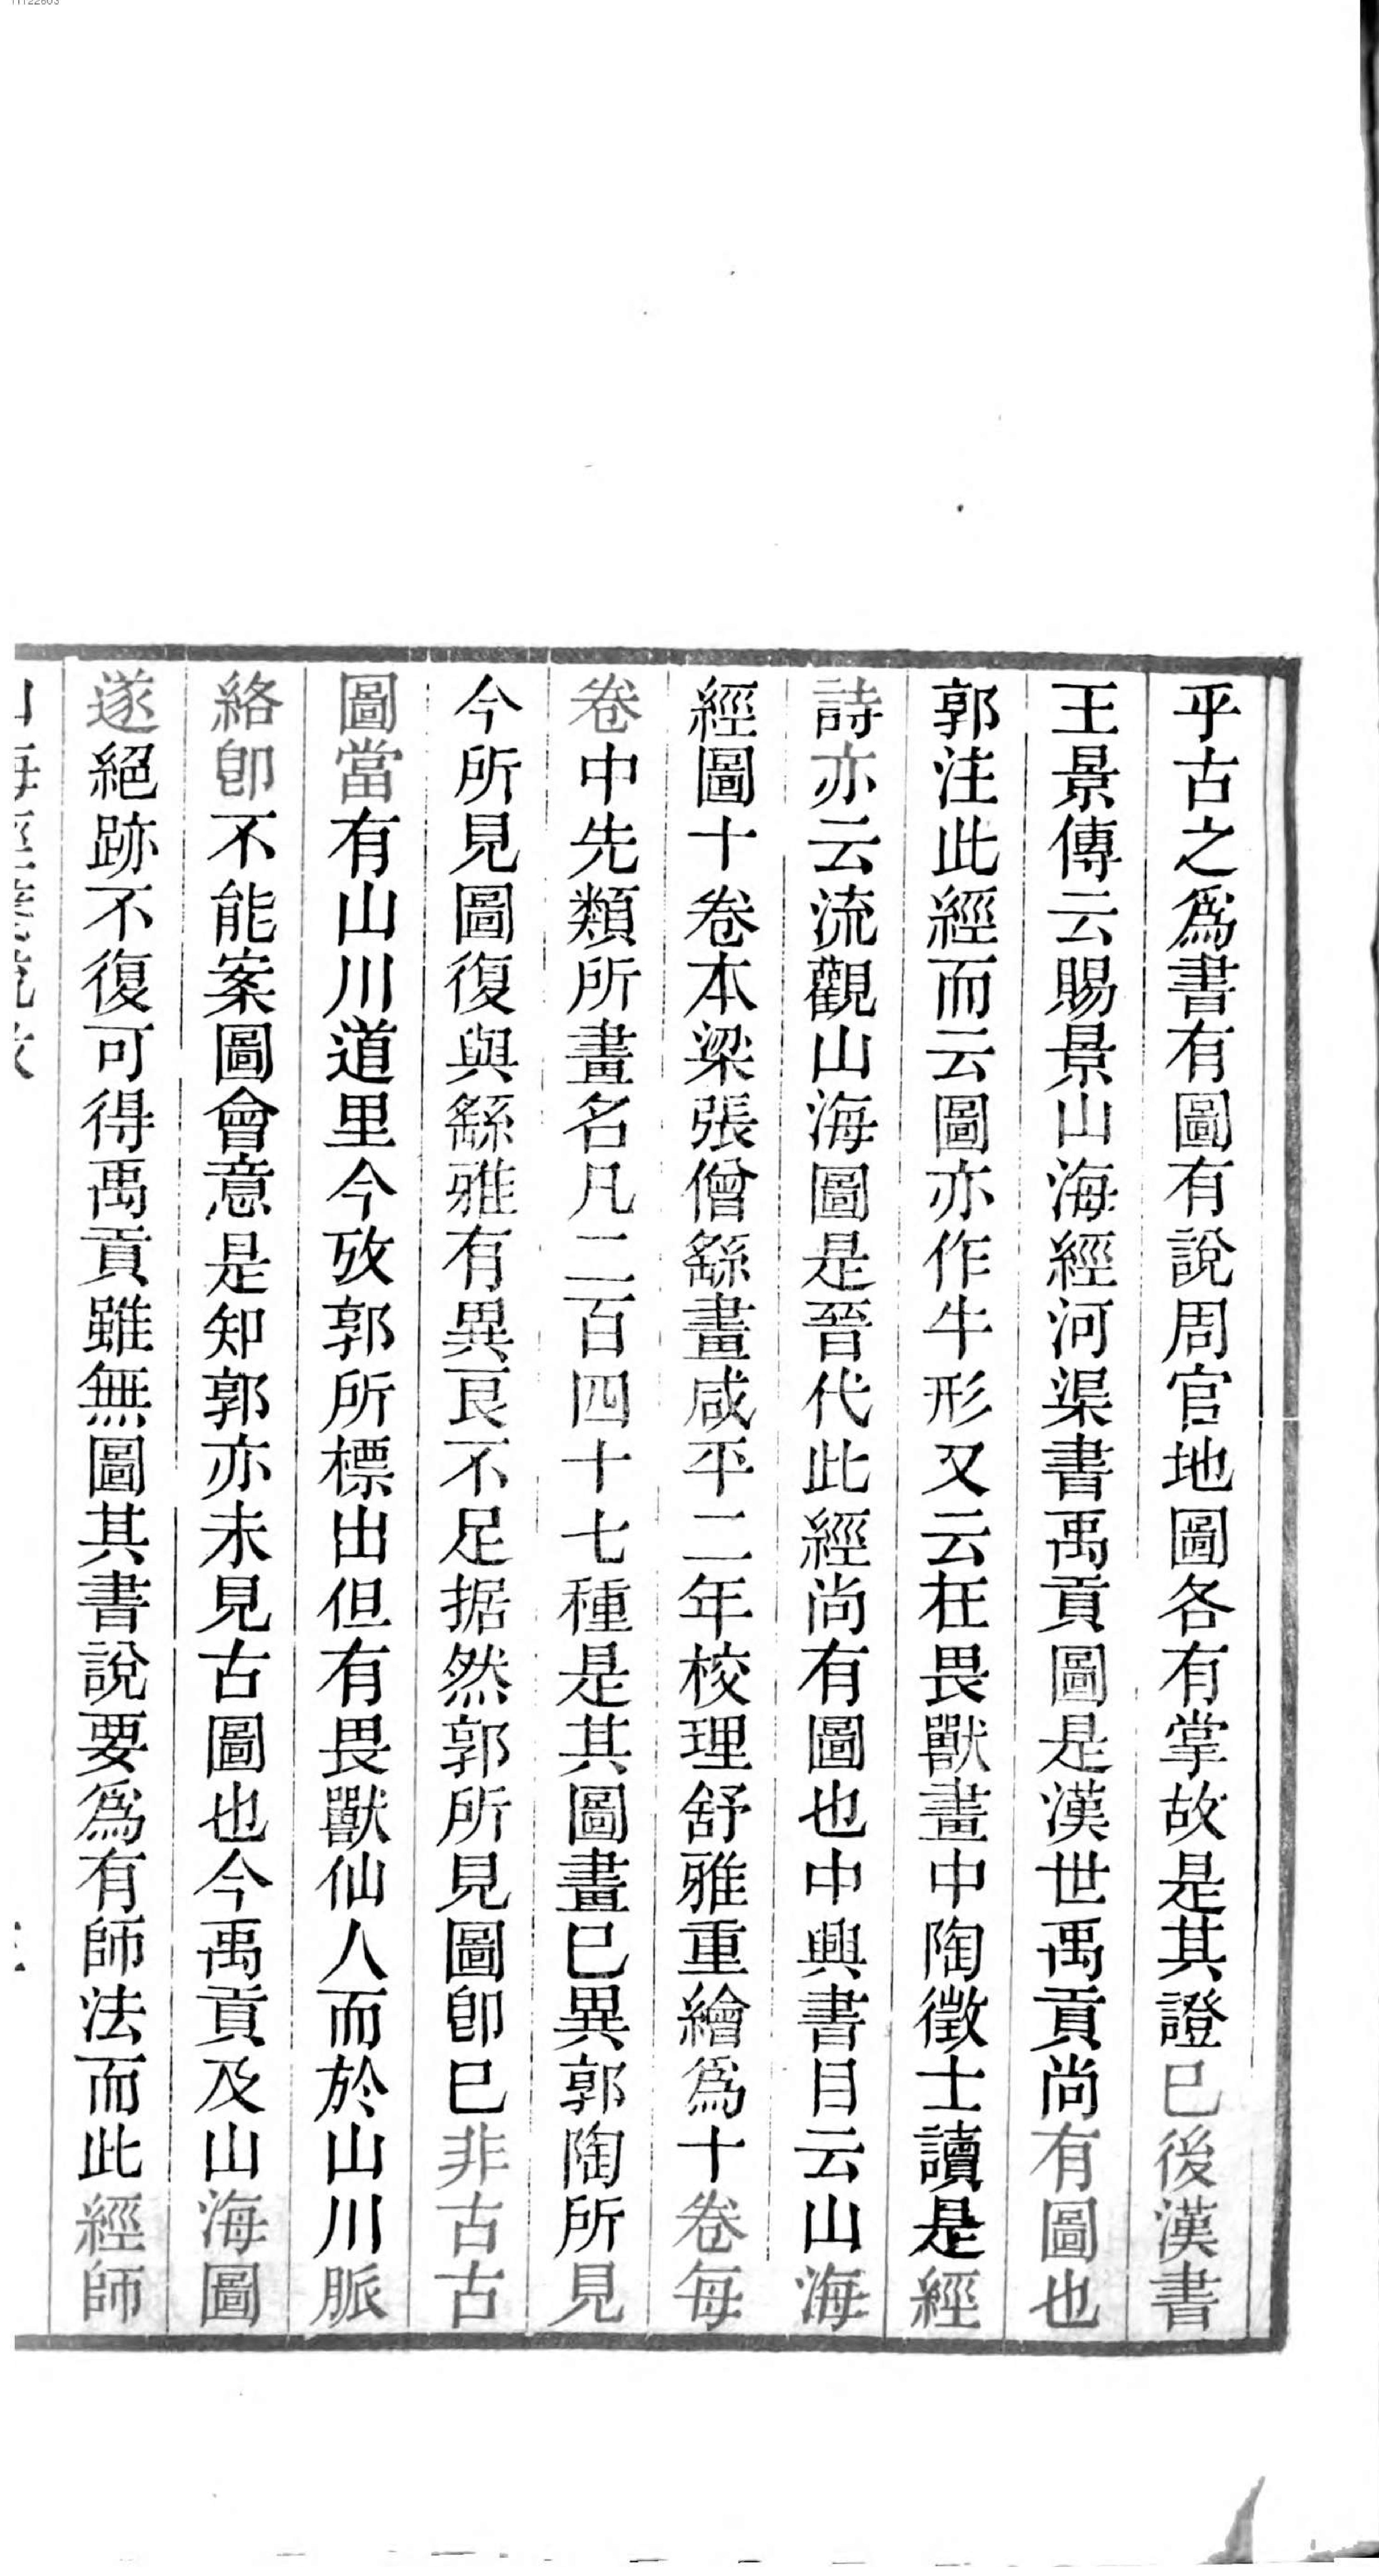 乎古之爲書有圖有說周官地圖各有掌故是其證已後漢書
王景傳云賜景山海經河渠書禹貢圖是漢世禹貢尚有圖也
郭注此經而云圖亦作牛形又云在畏獸畫中陶徵士讀是經
詩亦云流觀山海圖是晉代此經尚有圖也中興書目云山海
經圖十卷本梁張僧繇畫咸平二年校理舒雅重繪爲十卷每
卷中先類所畫名凡二百四十七種是其圖畫已異郭陶所見
今所見圖復與繇雅有異良不足据然郭所見圖卽已非古古
圖當有山川道里今攷郭所標出但有畏獸仙人而於山川脈
絡卽不能案圖會意是知郭亦未見古圖也今禹貢及山海圖
遂絕跡不復可得禹貢雖無圖其書說要爲有師法而此經師